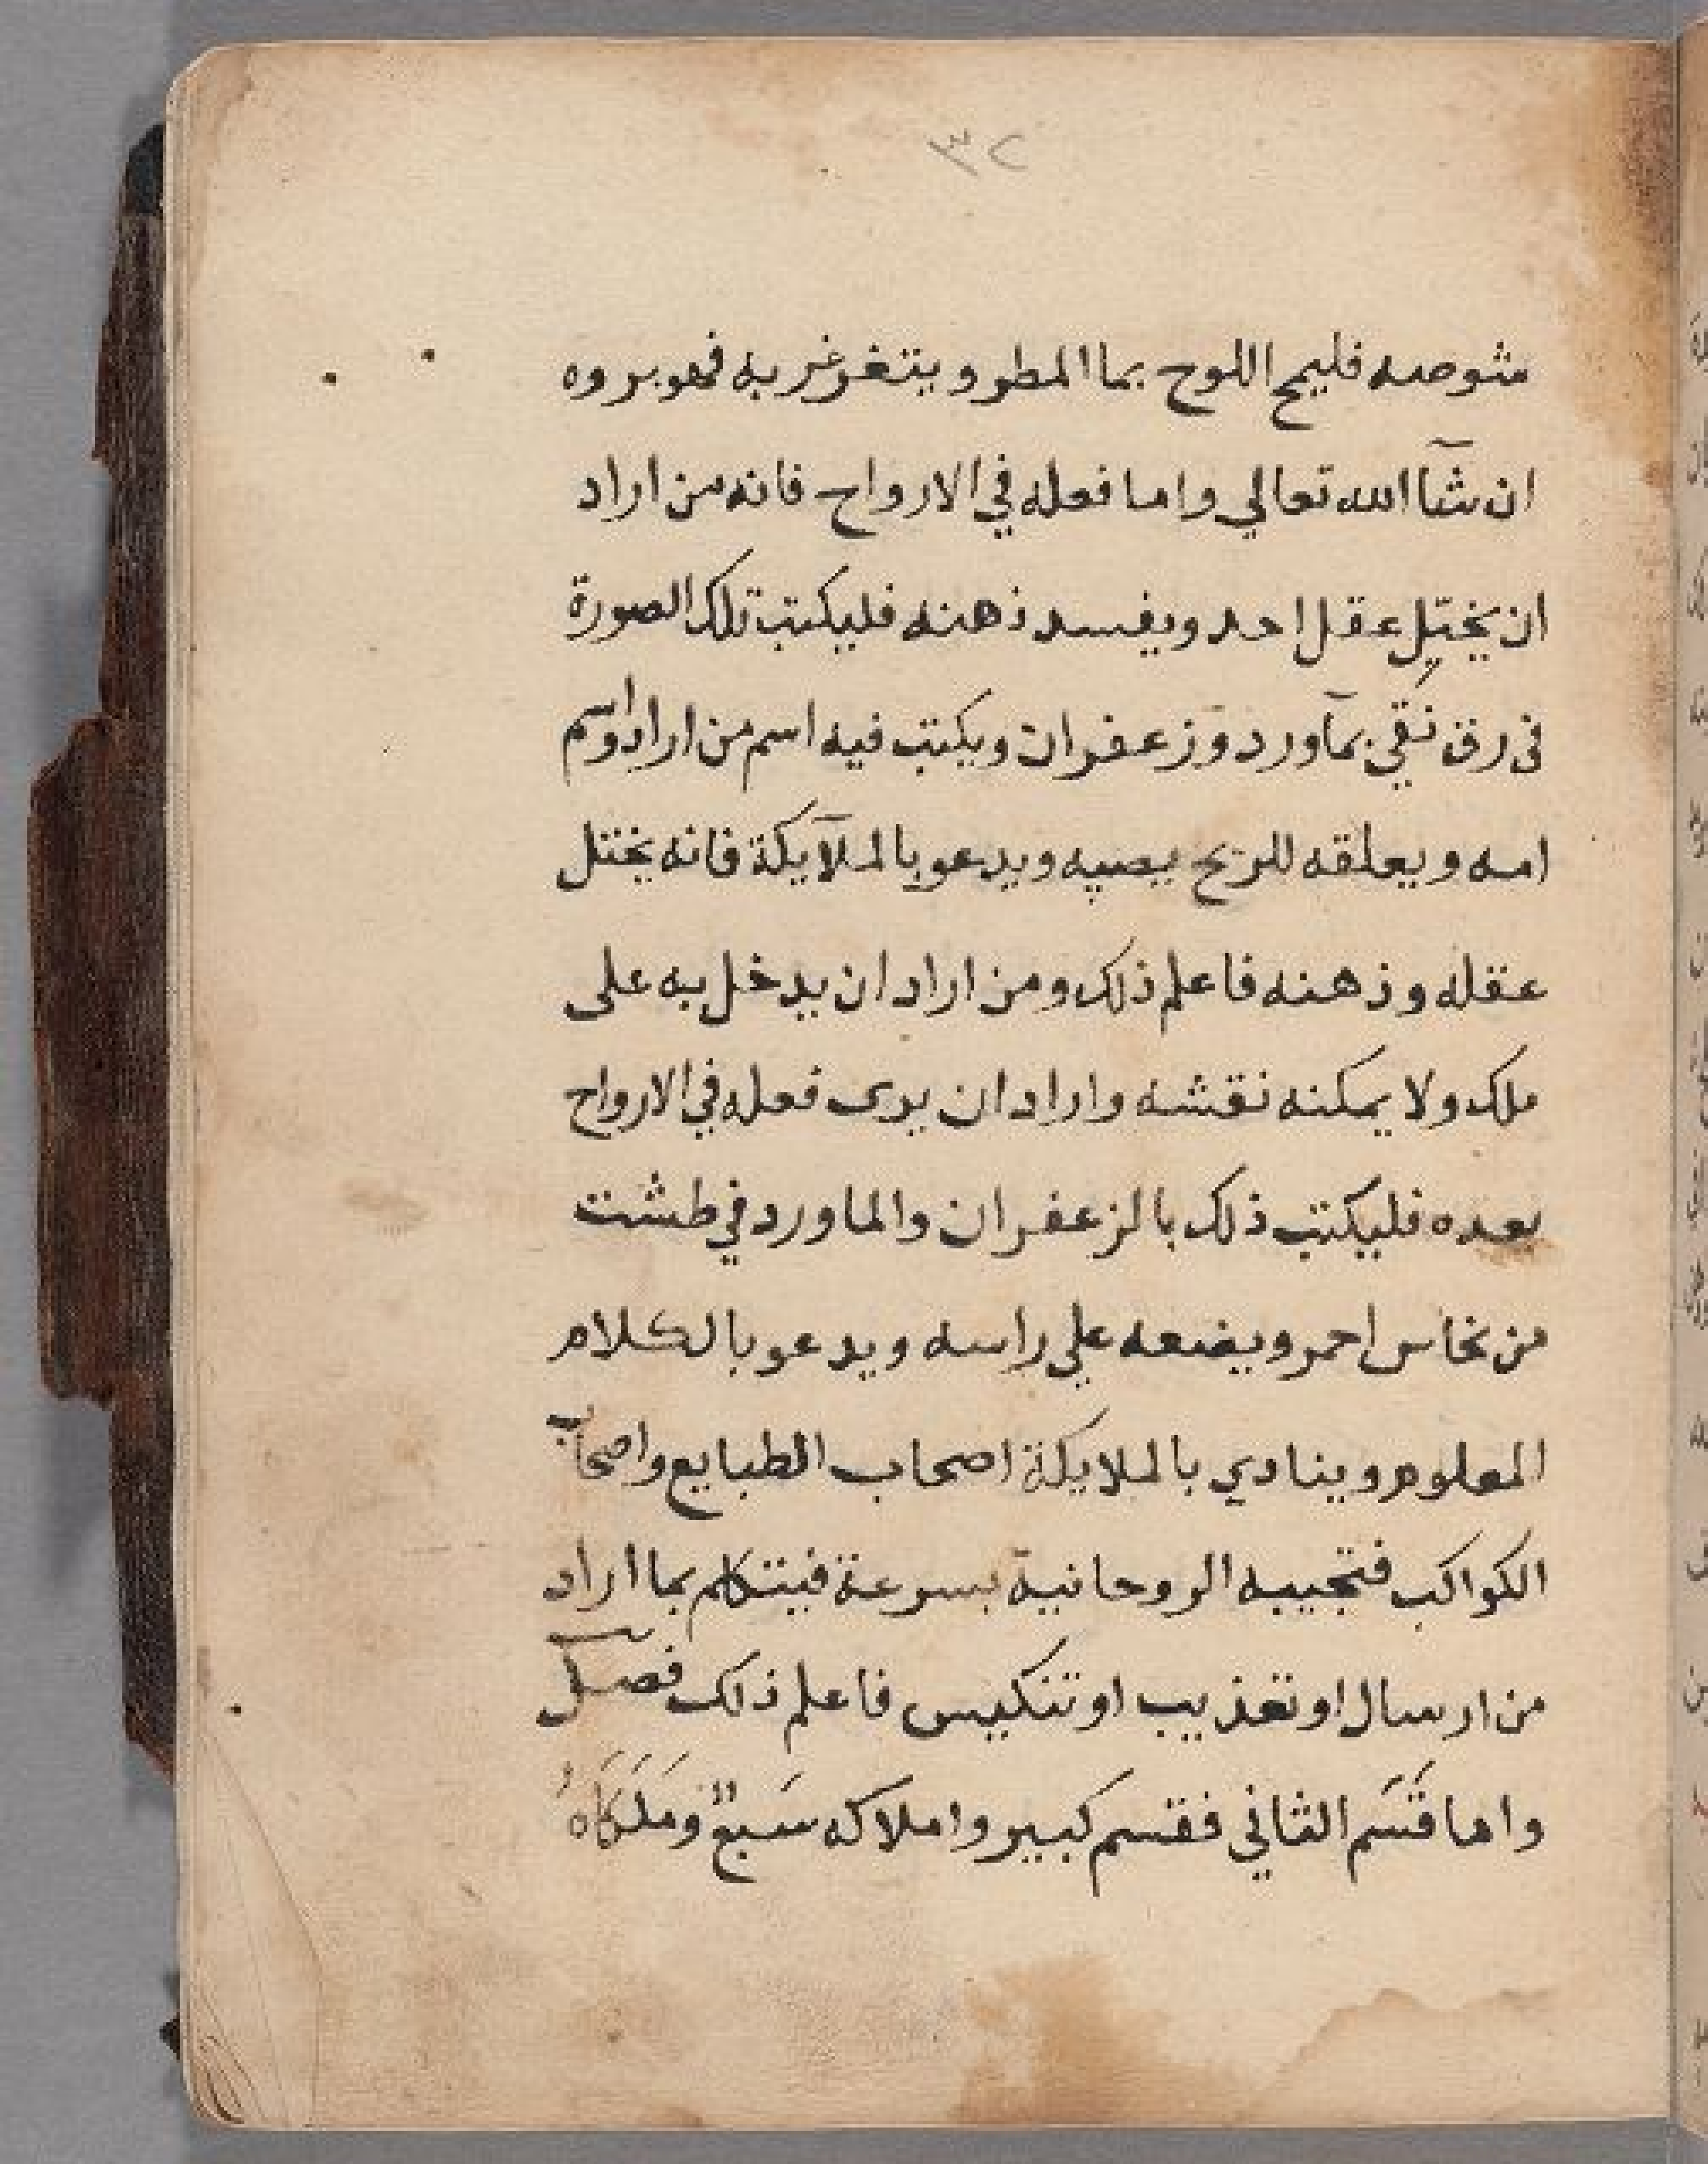 ٣٢
مثوصه فليمح اللوح بما المطر ويتغرغر به فهو بروه
ان شآ الله تعالي واما فعله في الارواح فانه من اراد
ان يختل عقل احد ويفسد ذهنه فليكتب تلك الصورة
فى رق نقي بمآورد وزعفران ويكتب فيه اسم من اراد واسم
امه ويعلقه للريح يصيبه ويدعو بالملآيكة فانه يختل
عقله وذهنه فاعلم ذلك ومن اراد ان يدخل به على
ملك ولا يمكنه نقشه واراد ان يرى فعله في الارواح
بعده فليكتب ذلك بالزعفران والماورد في طشت
من نحاس احمر ويضعه علي راسه ويدعو بالكلام
المعلوم وينادي بالملايكة اصحاب الطبايع واصحاب
الكواكب فتجيبه الروحانية بسرعة فيتكلم بما اراد
من ارسال او تعذيب او تنكيس فاعلم ذلك فصل
واما قَسَم الثاني فقسم كبير واملاكه سَبعٌ ومَلَكَاهُ